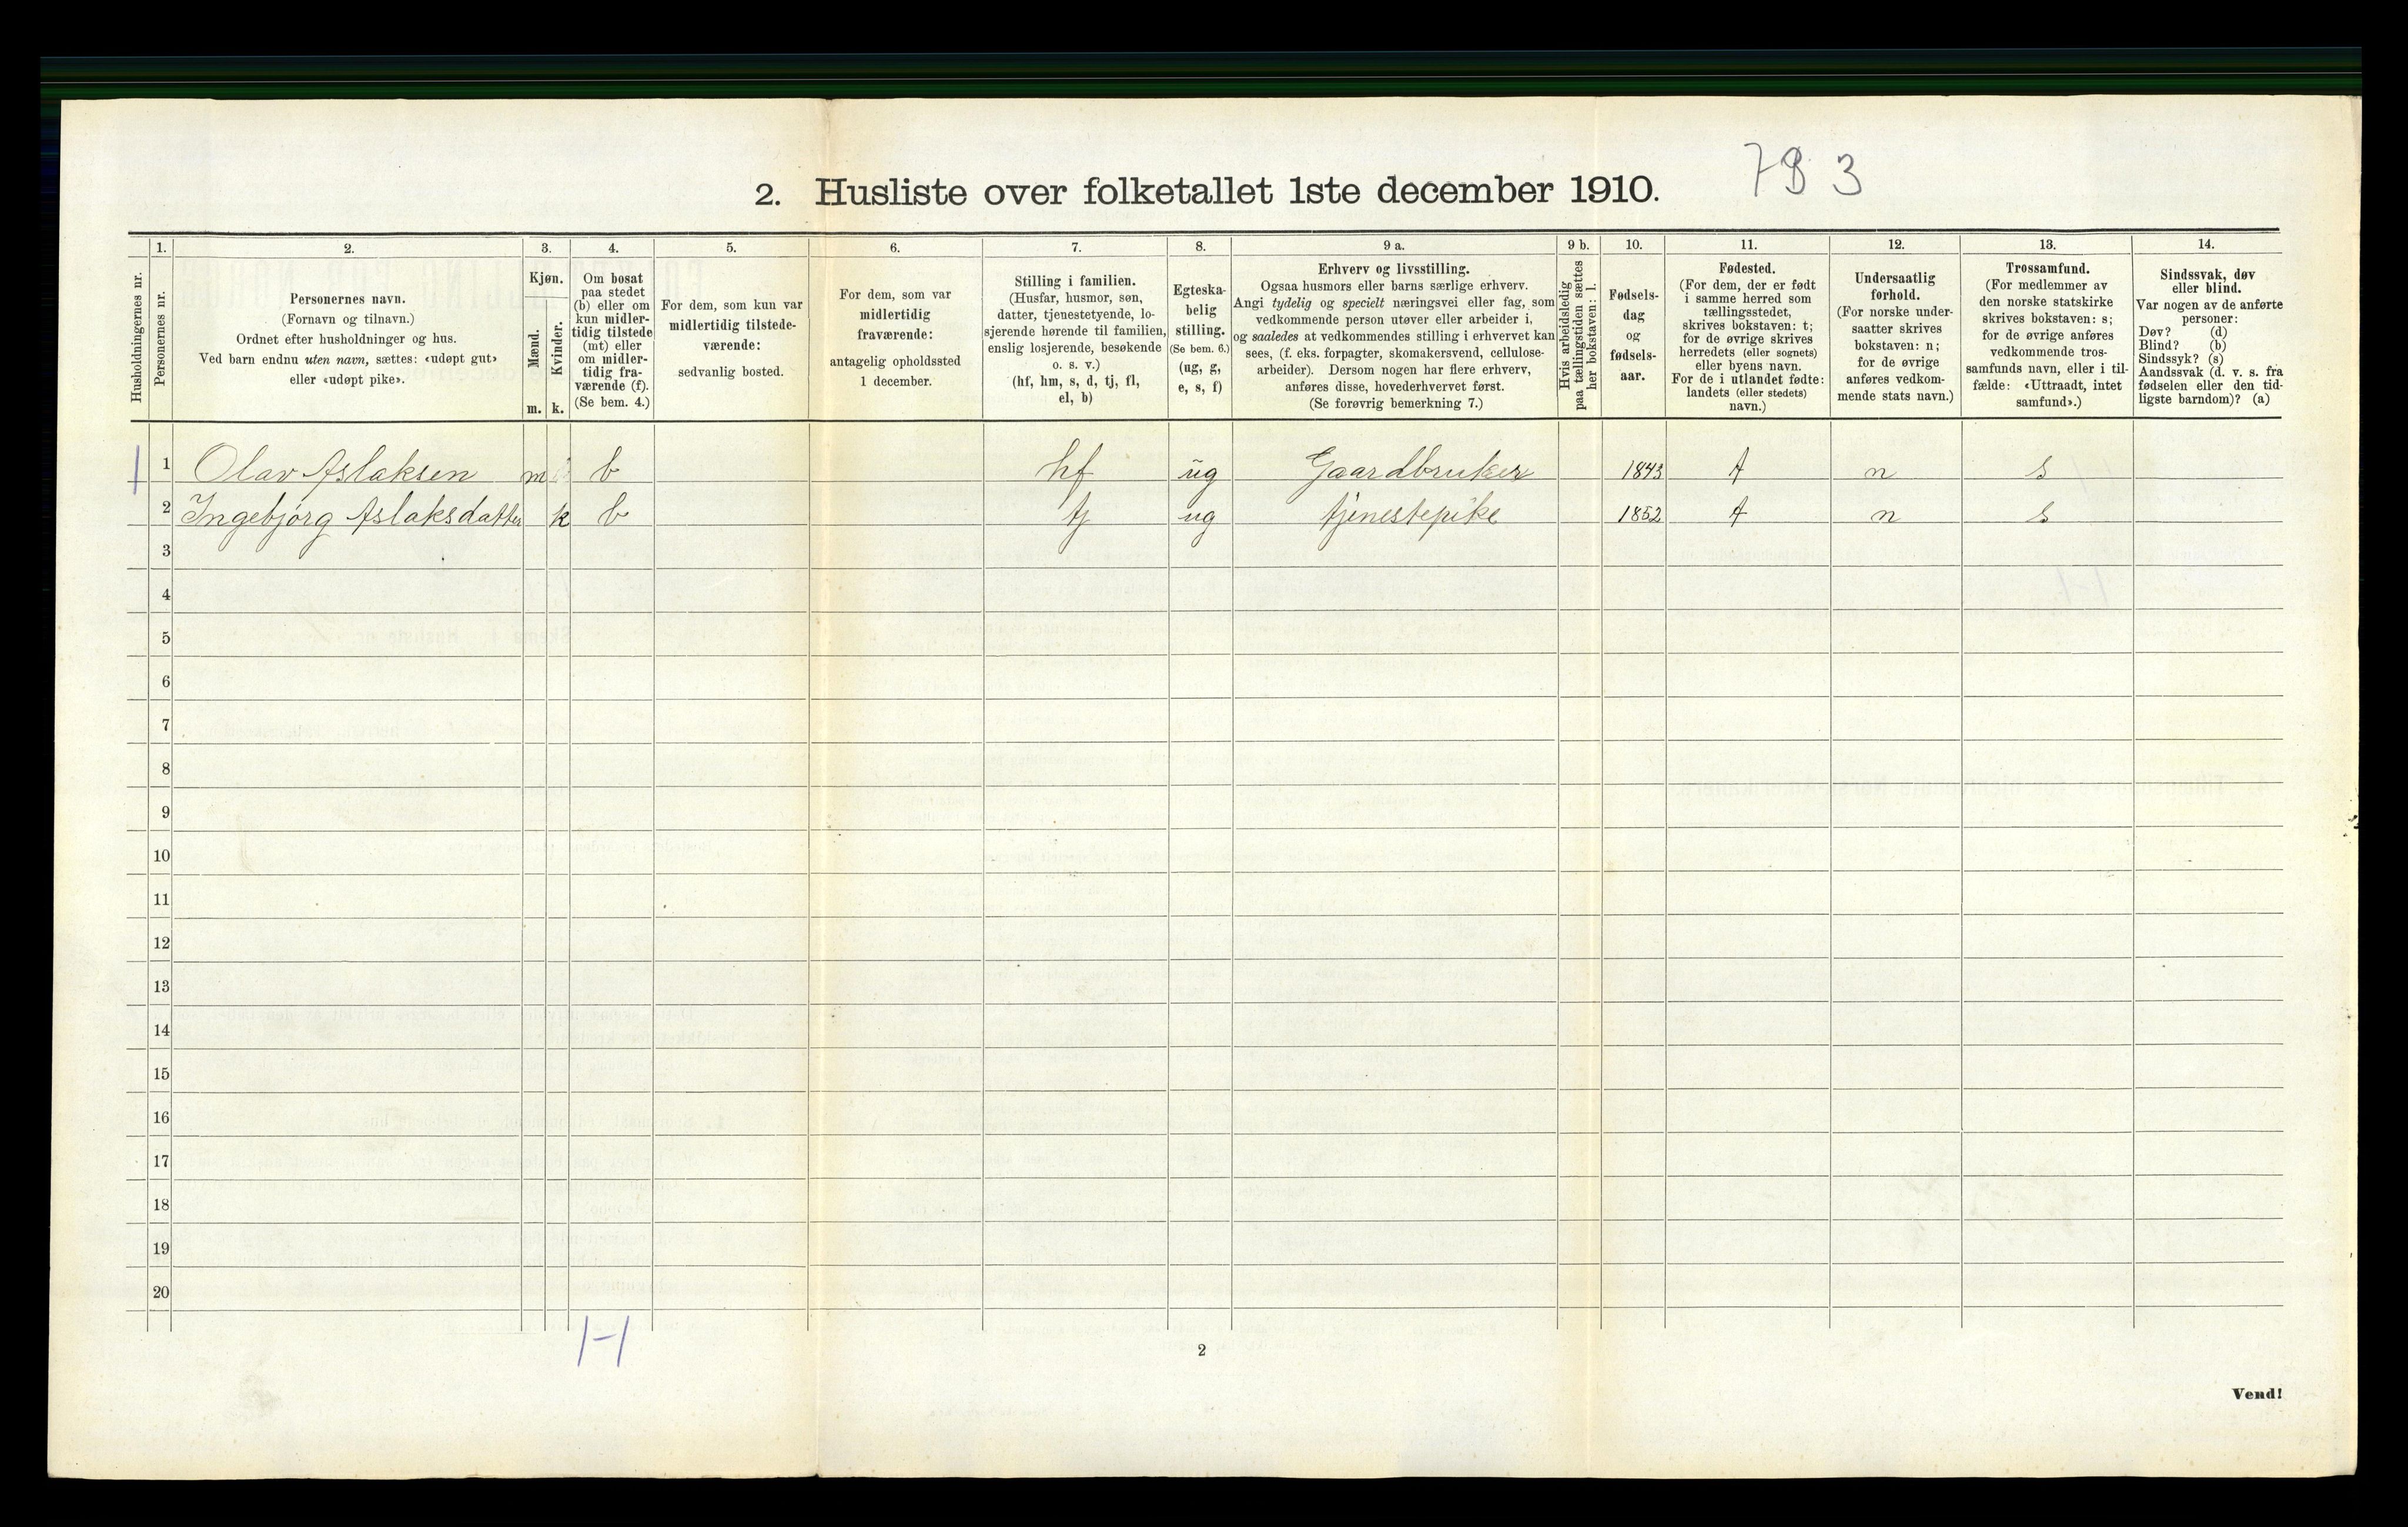 793
2. Husliste over folketallet 1ste december 1910.
1. 2. 3. 4. 5. 6. 7. 8. 9 a. 9 b. 10. 11. 12. 13. 14.
Husholdningernes nr.
Personernes nr.
Personernes navn.
(Fornavn og tilnavn.)
Ordnet efter husholdninger og hus.
Ved barn endnu uten navn, sættes: «udøpt gut»
eller «udøpt pike».
Kjøn.
Mænd.
Kvinder.
m. k.
Om bosat
paa stedet
(b) eller om
kun midler-
tidig tilstede
(mt) eller
om midler-
tidig fra-
værende (f).
(Se bem. 4.)
For dem, som kun var
midlertidig tilstede-
værende:
sedvanlig bosted.
For dem, som var
midlertidig
fraværende:
antagelig opholdssted
1 december.
Stilling i familien.
(Husfar, husmor, søn,
datter, tjenestetyende, lo-
sjerende hørende til familien,
enslig losjerende, besøkende
o. s. v.)
(hf, hm, s, d, tj, fl,
el, b)
Egteska-
belig
stilling.
(Se bem. 6.)
(ug, g,
e, s, f)
Erhverv og livsstilling.
Ogsaa husmors eller barns særlige erhverv.
Angi tydelig og specielt næringsvei eller fag, som
vedkommende person utøver eller arbeider i,
og saaledes at vedkommendes stilling i erhvervet kan
sees, (f. eks. forpagter, skomakersvend, cellulose-
arbeider). Dersom nogen har flere erhverv,
anføres disse, hovederhvervet først.
(Se forøvrig bemerkning 7.)
Hvis arbeidsledig
paa tællingstiden sættes
her bokstaven: l.
Fødsels-
dag
og
fødsels-
aar.
Fødested.
(For dem, der er født
i samme herred som
tællingsstedet,
skrives bokstaven: t;
for de øvrige skrives
herredets (eller sognets)
eller byens navn.
For de i utlandet fødte:
landets (eller stedets)
navn.)
Undersaatlig
forhold.
(For norske under-
saatter skrives
bokstaven: n;
for de øvrige
anføres vedkom-
mende stats navn.)
Trossamfund.
(For medlemmer av
den norske statskirke
skrives bokstaven: s;
for de øvrige anføres
vedkommende tros-
samfunds navn, eller i til-
fælde: «Uttraadt, intet
samfund».)
Sindssvak, døv
eller blind.
Var nogen av de anførte
personer:
Døv? (d)
Blind? (b)
Sindssyk? (s)
Aandssvak (d. v. s. fra
fødselen eller den tid-
ligste barndom)? (a)
1 1 Olav Aslaksen m b hf ug Gaardbruker 1843 t n s
2 Ingebjørg Aslaksdatter k b tj ug tjenestepike 1852 t n s
3
4
5
6
7
8
9
10
11
12
13
14
15
16
17
18
19
20
1-1
2
Vend!